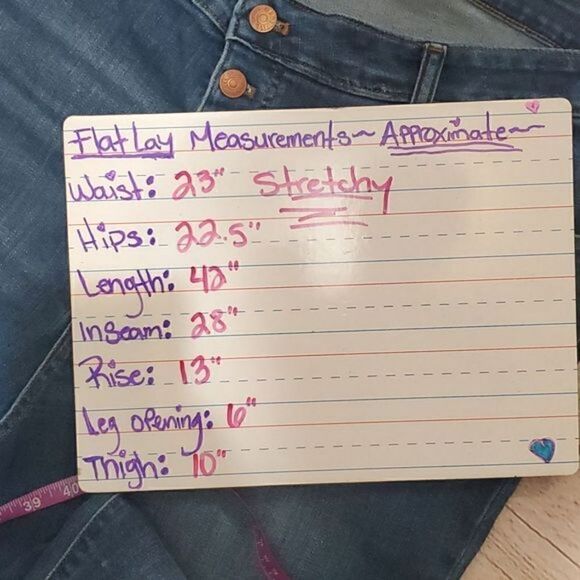 Flat Lay Measurements~ Approximate~
Waist: 23" Stretchy
Hips: 22.5"
Length: 42"
Inseam: 28"
Rise: 13"
Leg opening: 6"
Thigh: 10"
39 40